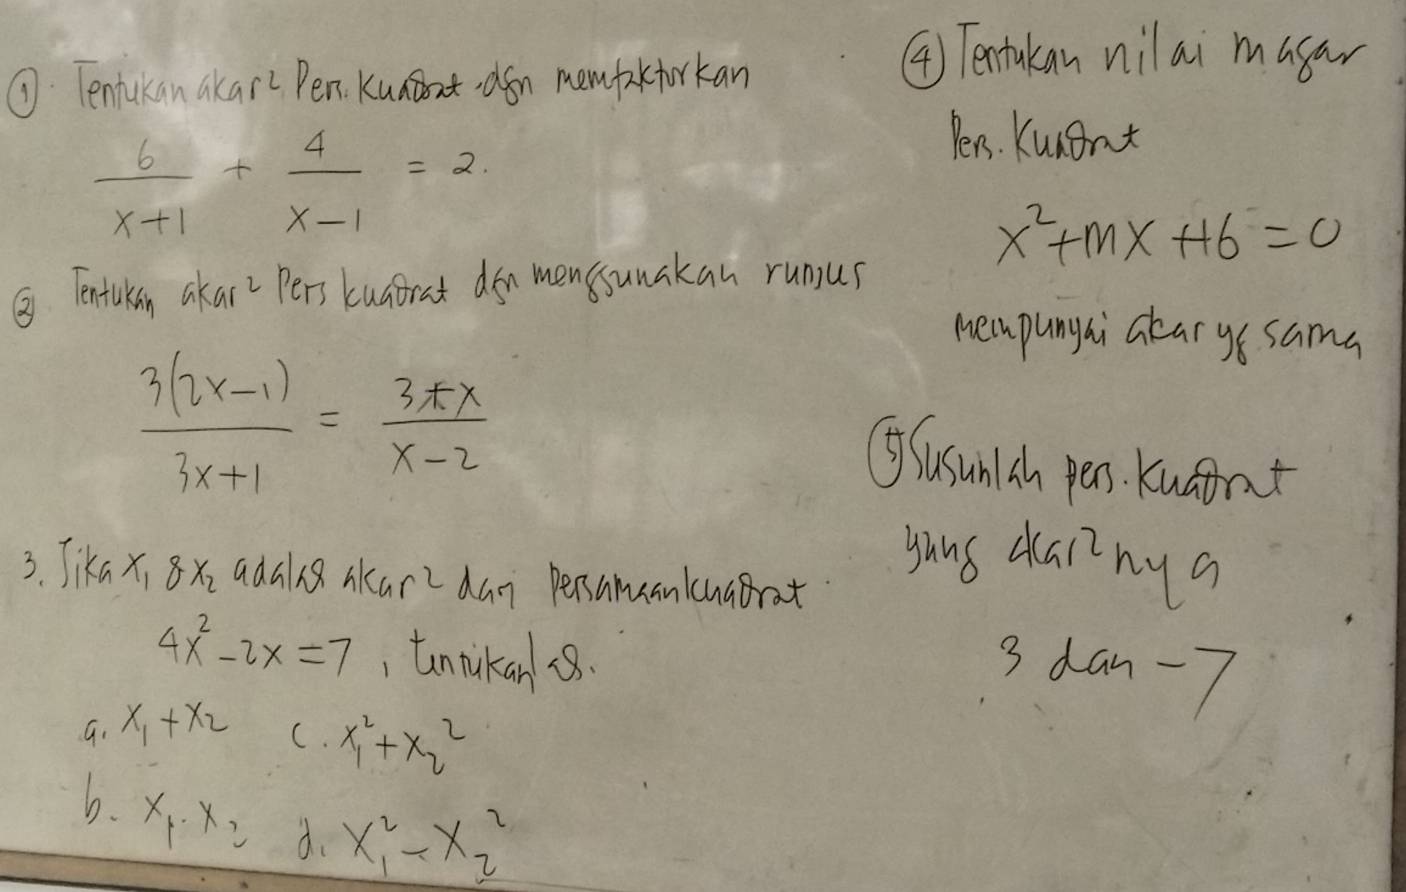 ① Tentukan akar² Pers. Kuadrat dgn memfaktorkan
6/(x+1) + 4/(x-1) = 2.
② Tentukan akar² Pers kuadrat dgn menggunakan rumus
3(2x-1)/(3x+1) = (3+x)/(x-2)
3. Jika x₁ & x₂ adalah akar² dari Persamaan kuadrat
4x² - 2x = 7, tentukanlah.
a. x₁ + x₂ c. x₁² + x₂²
b. x₁ . x₂ d. x₁² - x₂²
④ Tentukan nilai m agar
Pers. Kuadrat
x² + mx + 16 = 0
mempunyai akar yg sama
⑤ Susunlah pers. Kuadrat
yang akar² nya
3 dan -7